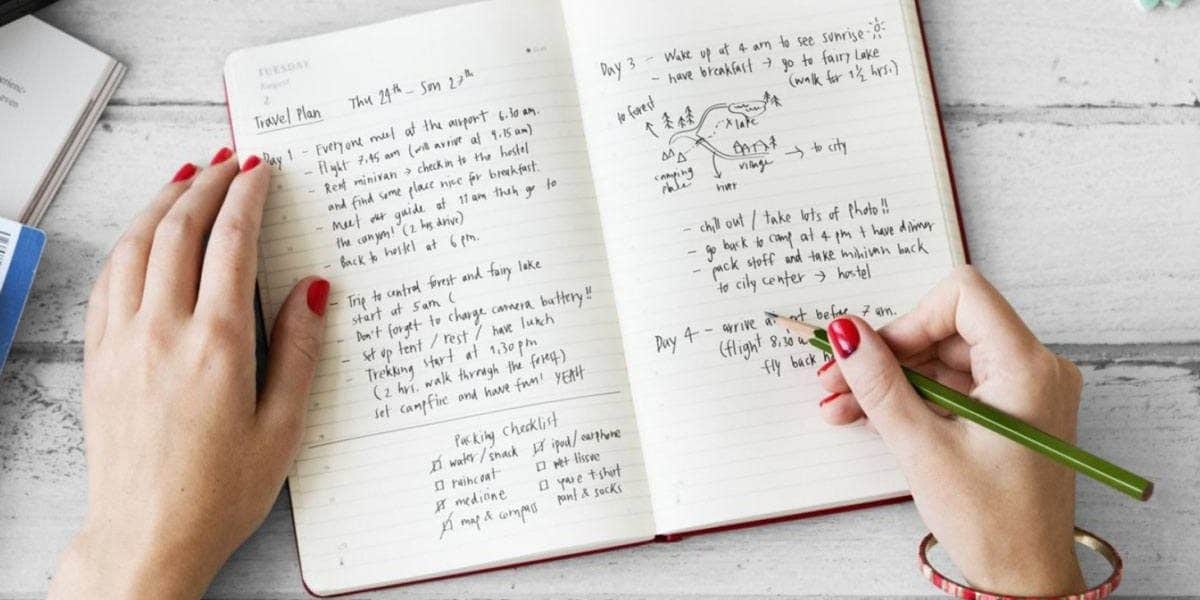 TUESDAY
August
2
Travel Plan Thu 24th - Sun 27th
Day 1 - Everyone meet at the airport 6.30 am.
- Flight 7.45 am (will arrive at 9.15 am)
- Rent minivan → checkin to the hostel
and find some place nice for breakfast.
- Meet our guide at 11 am then go to
the canyon! (2 hrs drive)
- Back to hostel at 6 pm.
- Trip to central forest and fairy lake
start at 5 am (
- Don't forget to charge camera battery!!
- Set up tent / rest / have lunch
- Trekking start at 1.30 pm
(2 hrs. walk through the forest)
set campfire and have fun! YEAH
Packing Checklist
water / snack
raincoat
medicine
map & compass
ipod / earphone
wet tissue
t-shirt
pant & socks
Day 3 - Wake up at 4 am to see sunrise
- have breakfast → go to fairy Lake
(walk for 1 1/2 hrs.)
to forest
lake
village
→ to city
camping
river
- chill out / take lots of photo!!
- go back to camp at 4 pm + have dinner
- pack stuff and take minivan back
to city center → hostel
Day 4 - arrive before 7 am.
(flight 8.30
fly back